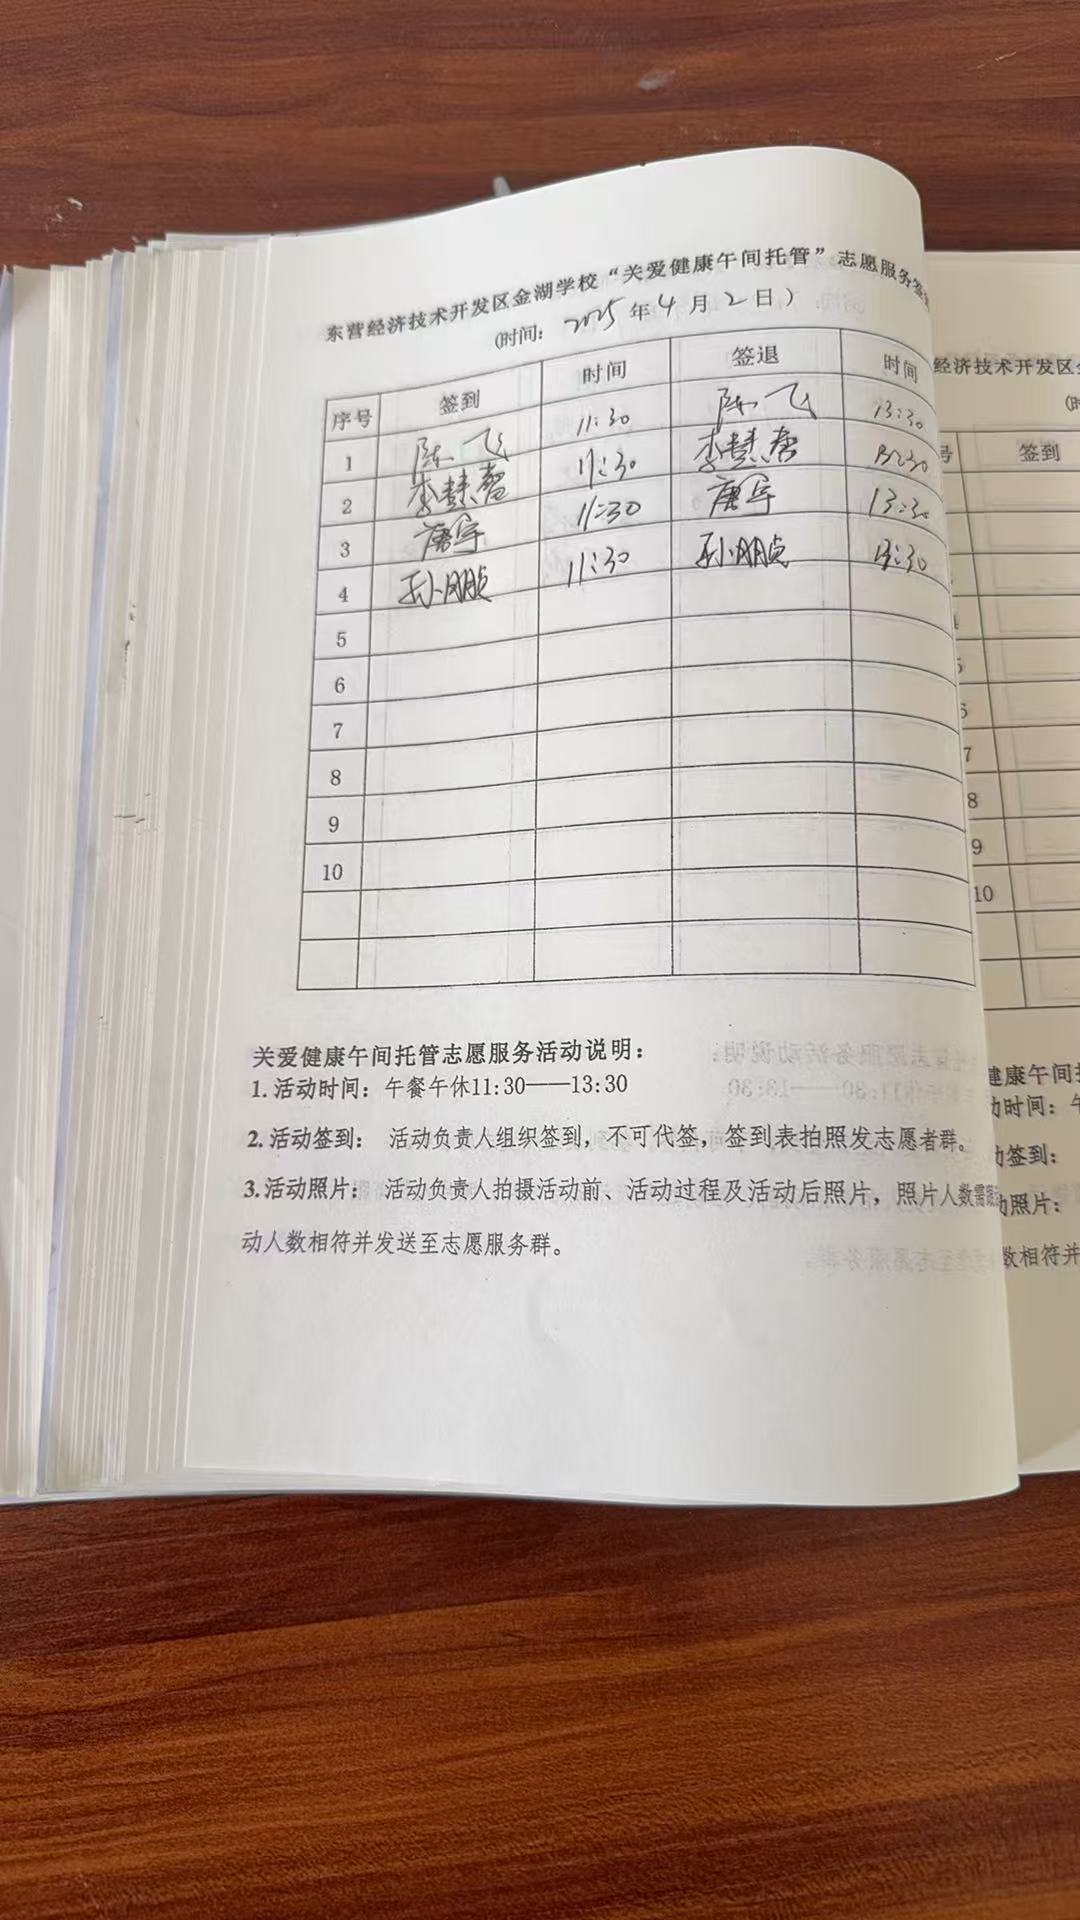 东营经济技术开发区金湖学校“关爱健康午间托管”志愿服务签
(时间: 2025年4月2日)
序号 签到 时间 签退 时间
1 陈飞 11:30 陈飞 13:30
2 李慧馨 11:30 李慧馨 13:30
3 唐宇 11:30 唐宇 13:30
4 孙鹏贞 11:30 孙鹏贞 13:30
5
6
7
8
9
10
关爱健康午间托管志愿服务活动说明:
1.活动时间: 午餐午休11:30——13:30
2.活动签到: 活动负责人组织签到, 不可代签, 签到表拍照发志愿者群。
3.活动照片: 活动负责人拍摄活动前、活动过程及活动后照片, 照片人数需跟
动人数相符并发送至志愿服务群。
经济技术开发区
号 签到
7
8
9
10
健康午间
时间:
签到:
照片:
数相符并